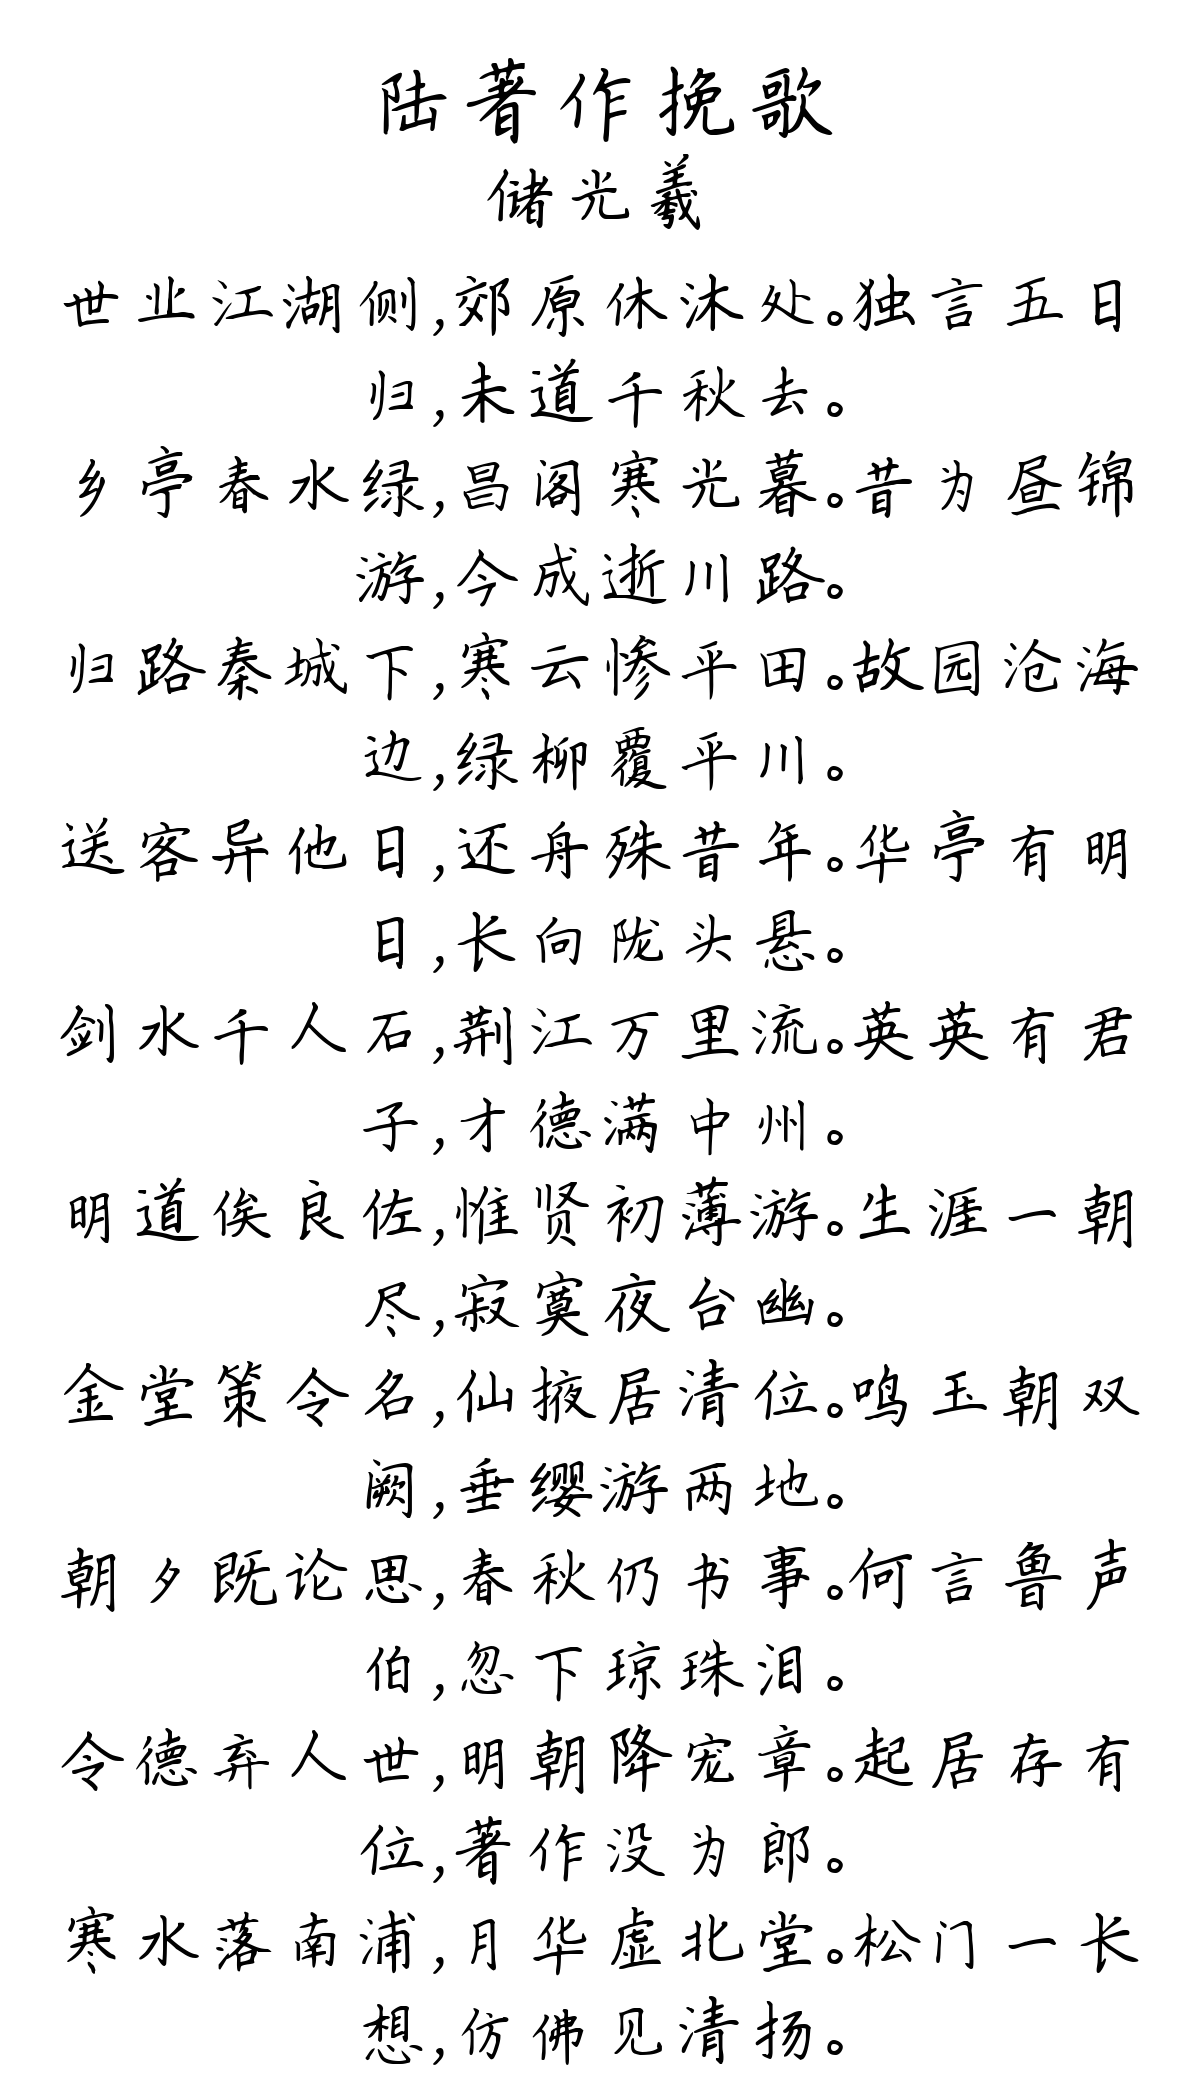 陆著作挽歌
储光羲
世业江湖侧,郊原休沐处。独言五日
归,未道千秋去。
乡亭春水绿,昌阁寒光暮。昔为昼锦
游,今成逝川路。
归路秦城下,寒云惨平田。故园沧海
边,绿柳覆平川。
送客异他日,还舟殊昔年。华亭有明
日,长向陇头悬。
剑水千人石,荆江万里流。英英有君
子,才德满中州。
明道俟良佐,惟贤初薄游。生涯一朝
尽,寂寞夜台幽。
金堂策令名,仙掖居清位。鸣玉朝双
阙,垂缨游两地。
朝夕既论思,春秋仍书事。何言鲁声
伯,忽下琼珠泪。
令德弃人世,明朝降宠章。起居存有
位,著作没为郎。
寒水落南浦,月华虚北堂。松门一长
想,仿佛见清扬。